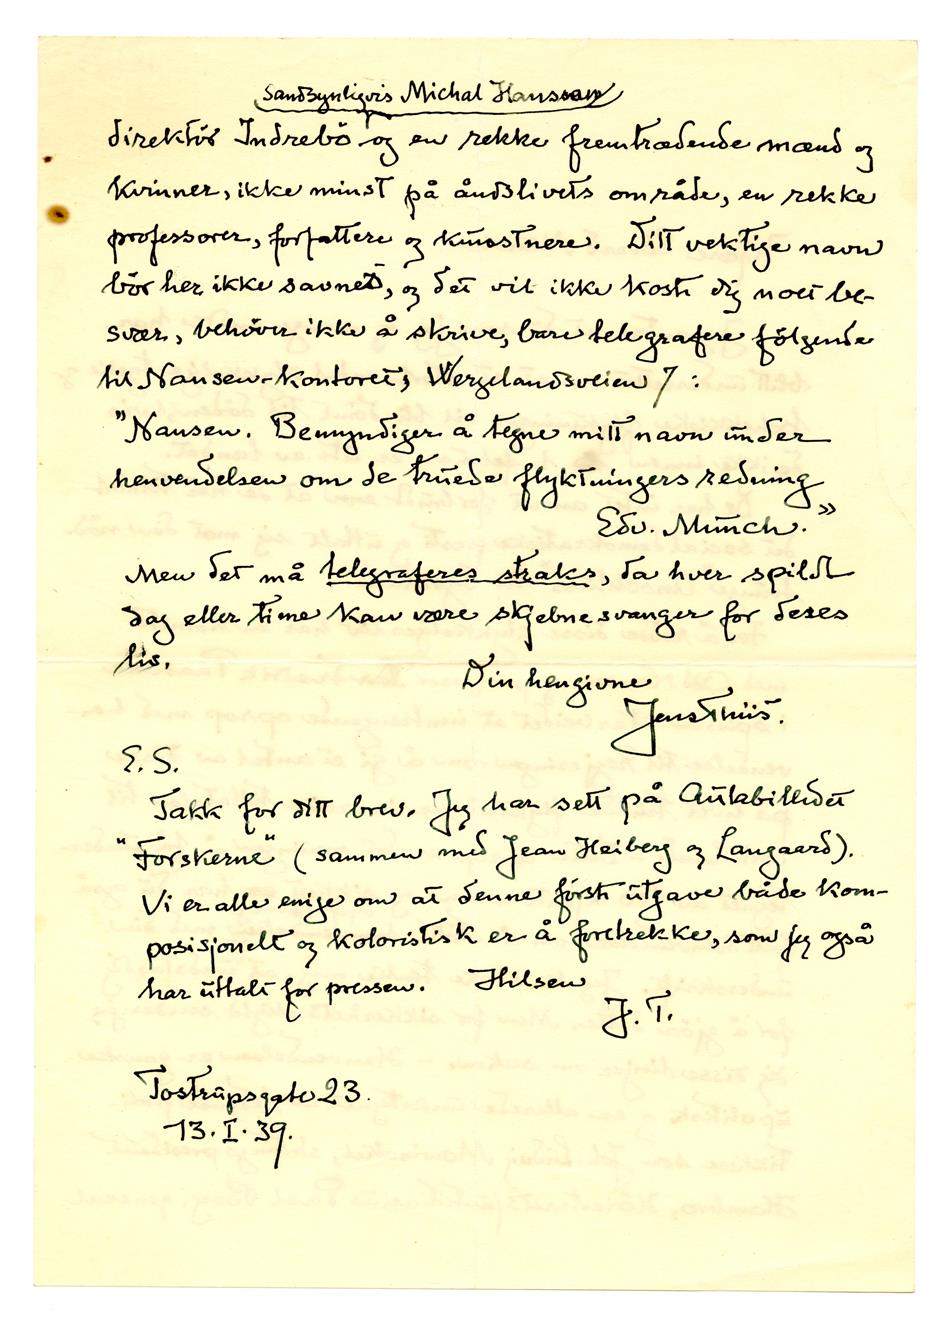 Sandsynligvis Michal Hanssen
direktör Indrebö og en rekke fremtrædende mænd og
kvinner, ikke minst på åndslivets område, en rekke
professorer, forfattere og kunstnere. Ditt vektige navn
bör her ikke savnes, og det vil ikke koste dig noet be-
svær, behöver ikke å skrive, bare telegrafere fölgende
til Nansen-kontoret, Wergelandsveien 7 :
"Nansen. Bemyndiger å tegne mitt navn under
henvendelsen om de truede flyktningers redning
Edv. Munch."
Men det må telegraferes straks, da hver spildt
dag eller time kan være skjebnesvanger for deres
liv.
Din hengivne
Jens Thiis.
E. S.
Takk for ditt brev. Jeg har sett på Aulabilledet
"Forskerne" (sammen med Jean Heiberg og Langaard).
Vi er alle enige om at denne förste utgave både kom-
posisjonelt og koloristisk er å foretrekke, som jeg også
har uttalt for pressen. Hilsen
J. T.
Tostrupsgate 23.
13. I. 39.